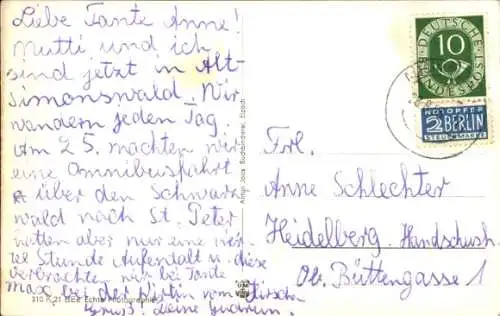 Liebe Tante Anne!
Mutti und ich
sind jetzt in Alt-
Simonswald. Wir
wandern jeden Tag.
Am 25. machten wir
eine Omnibusfahrt
über den Schwarz
wald nach St. Peter
hatten aber nur eine vier
tel Stunde Aufenthalt u. diese
verbrachten wir bei Tante
Max bei der Wirtin vom Hirschen
Gruß! Deine Gudrun.
310 K 21
Echte Photographie
Buchbinderei, Elzach
DEUTSCHE BUNDESPOST
10
NOTOPFER
2 BERLIN
STEUERMARKE
Frl.
Anne Schlechter
Heidelberg. Handschush.
Ob. Büttengasse 1